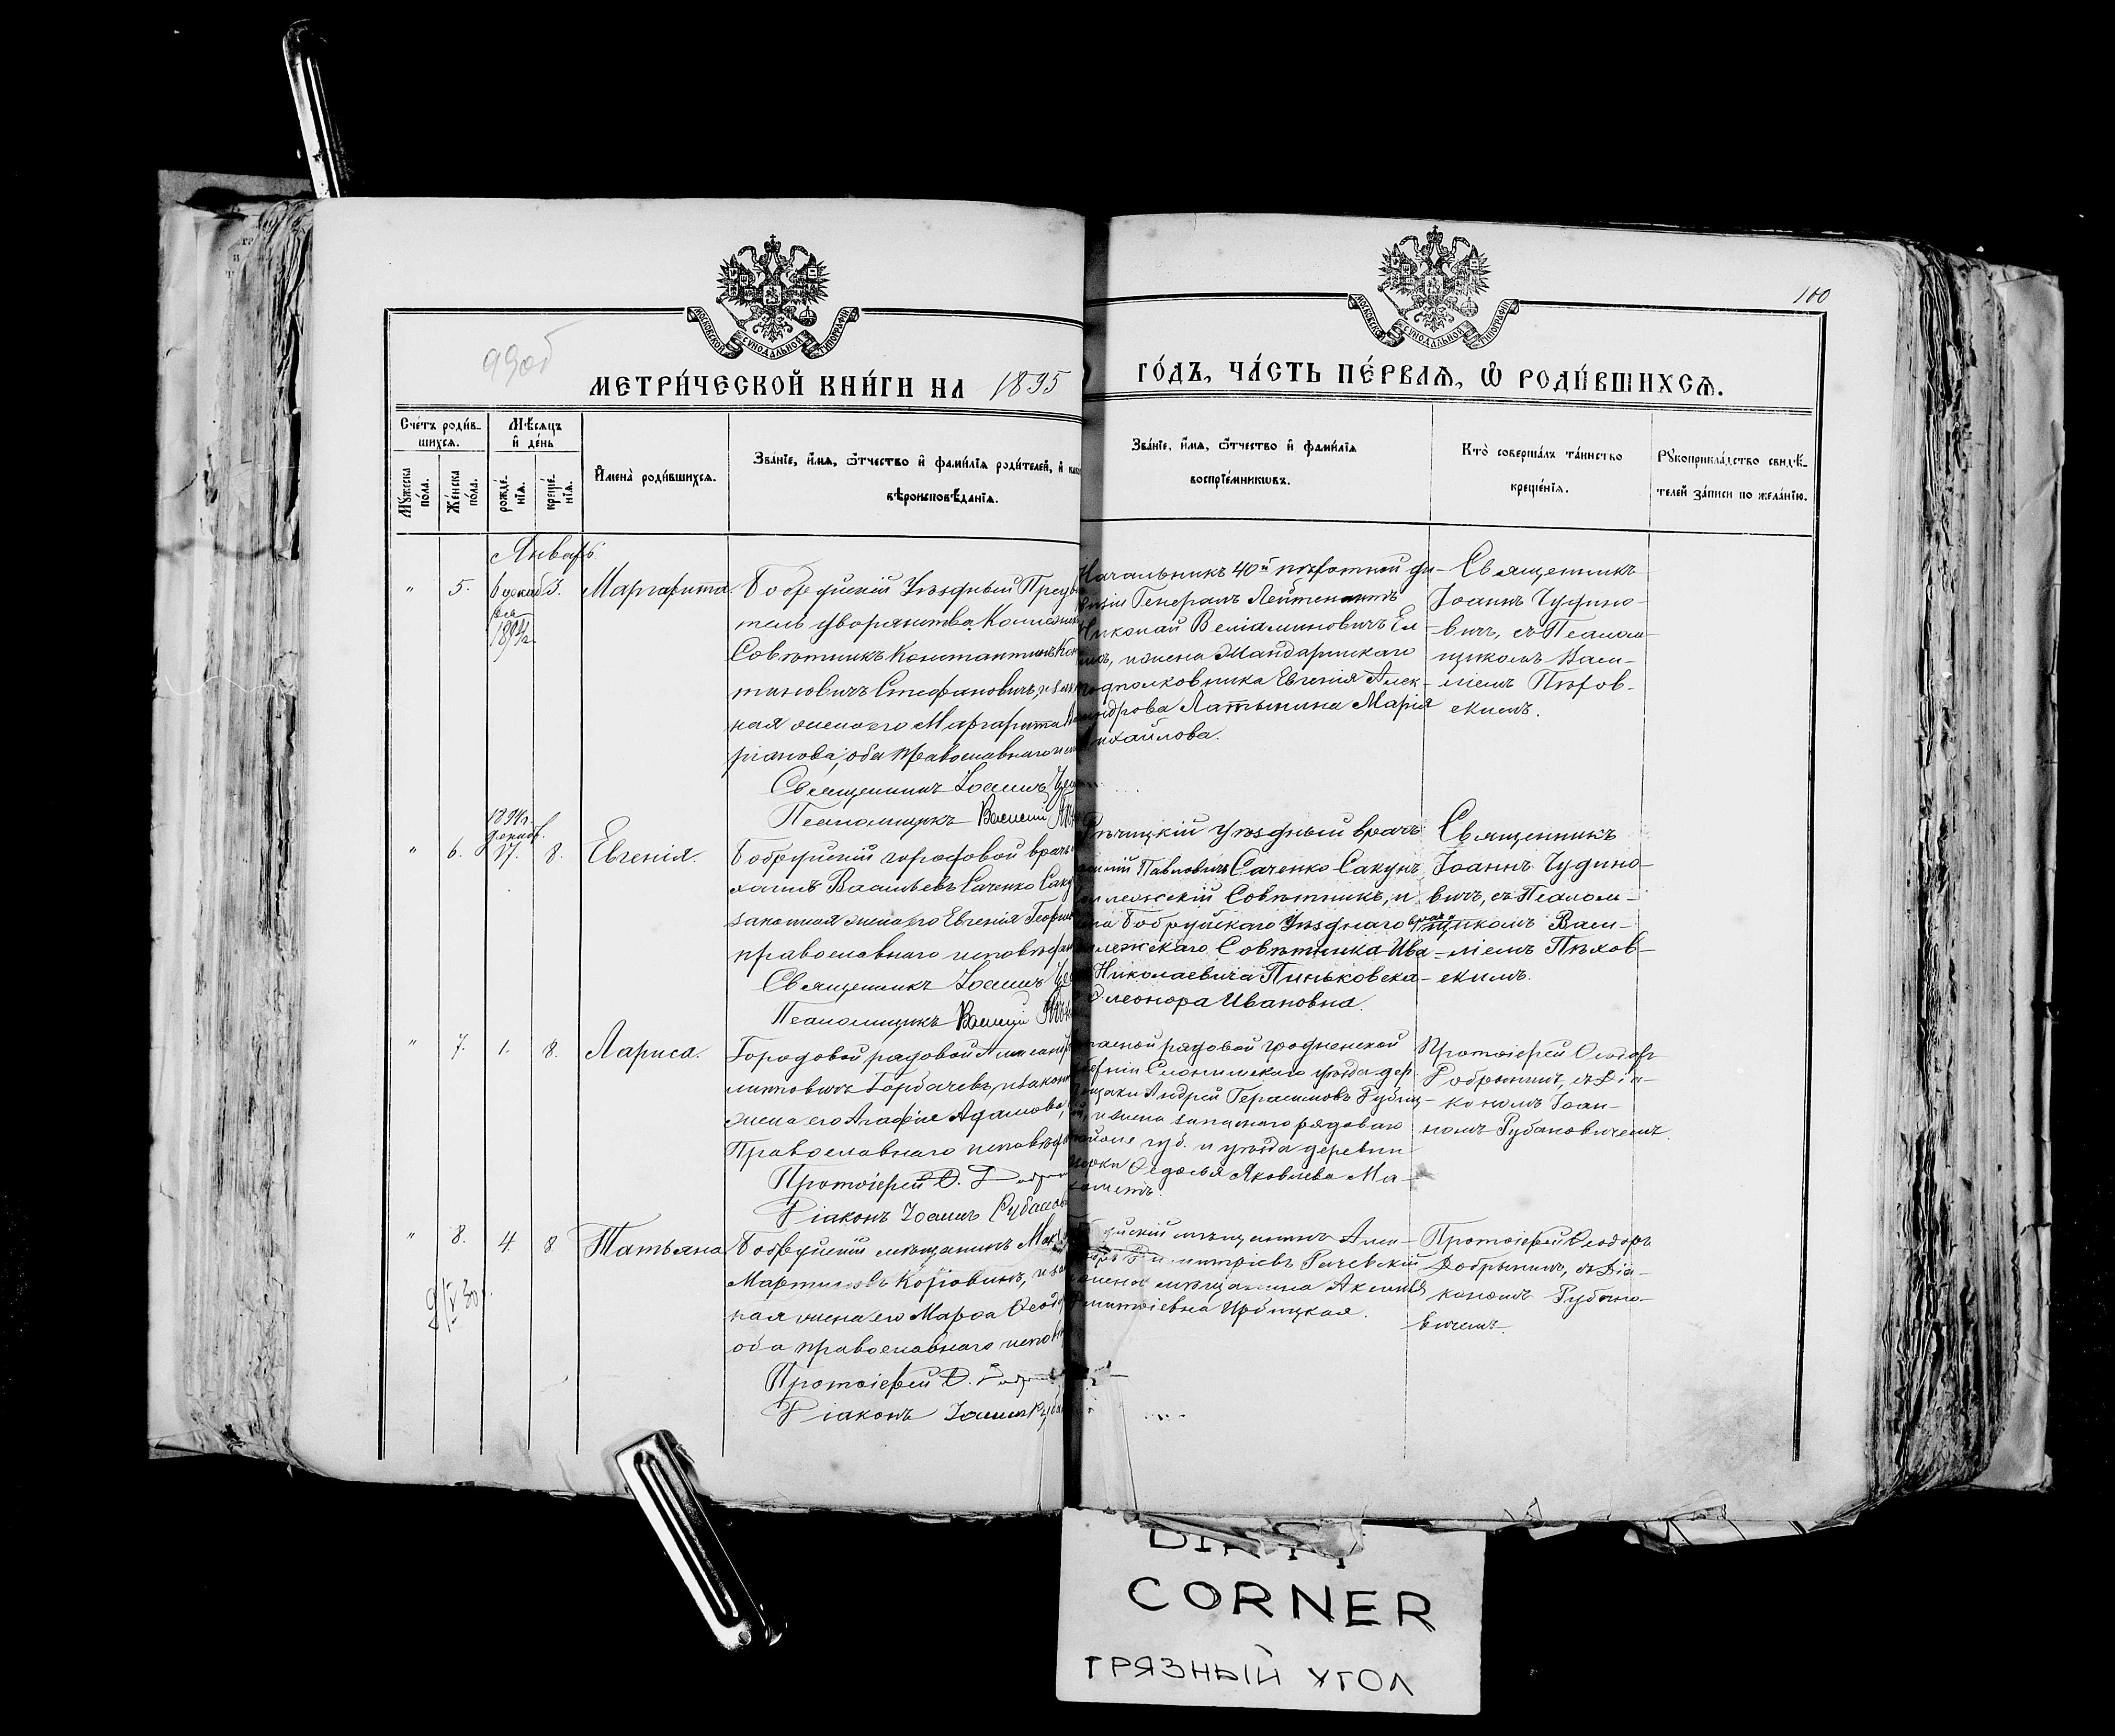 100
93об
МОСКОВСКОЙ СУНОДАЛЬНОЙ ТИПОГРАФІИ
МОСКОВСКОЙ СУНОДАЛЬНОЙ ТИПОГРАФІИ
МЕТРИ́ЧЕСКОЙ КНИ́ГИ НА 1895
ГО́ДЪ, ЧА́СТЬ ПЕ́РВАѦ, Ѡ҆ РОДИ́ВШИХСѦ.
Сче́тъ роди́в-
шихсѧ.
Мꙋ́жеска по́ла.
Же́нска по́ла.
Мѣ́сѧцъ
и҆ де́нь
рожде́-
нїѧ.
креще́-
нїѧ.
И҆мена̀ роди́вшихсѧ.
Зва́нїе, и҆́мѧ, ѻ҆́тчество и҆ фами́лїѧ роди́телей, и҆
вѣроисповѣ́данїѧ.
Зва́нїе, и҆́мѧ, ѻ҆́тчество и҆ фами́лїѧ
воспрїе́мникѡвъ.
Кто̀ соверша́лъ та́инство
креще́нїѧ.
Рꙋкоприкла́дство свидѣ́-
телей за́писи по жела́нїю.
Январь.
" 5. 6 декаб 3. Маргарита.
ря
1894 г.
Бобруйскій Уѣздный Пред
тель дворянства, Коллежскій
Совѣтникъ Константинъ Кон
тиновичъ Стефановичъ, и зак
ная жена его Маргарита
ріанова, оба православнаго
Священникъ Іоаннъ
Псаломщикъ Василій
Начальникъ 40й пѣхотной ди-
визіи Генералъ Лейтенантъ
Николай Веліаминовичъ
и жена Мандарскаго
подполковника Евгенія Алек-
сандрова Латынина Марія
Михайлова.
Священникъ
Іоаннъ Чудино-
вичъ, съ Псалом-
щикомъ Васи-
ліемъ Пѣхов-
скимъ.
1894 г.
декаб.
" 6. 17. 8. Евгенія.
Бобруйскій городовой врачъ
Васильевъ Саченко Саку
законная жена его Евгенія Георгі
православнаго исповѣдан
Священникъ Іоаннъ
Псаломщикъ Василій
Рѣчицкій Уѣздный врачъ
Павловичъ Саченко Сакунъ,
Коллежскій Совѣтникъ, и
жена Бобруйскаго Уѣзднаго врача
Коллежскаго Совѣтника Ива-
Николаевича Пиньковска-
Элеонора Ивановна.
Священникъ
Іоаннъ Чудино-
вичъ, съ Псалом-
щикомъ Васи-
ліемъ Пѣхов-
скимъ.
" 7. 1. 8. Лариса.
Городовой рядовой Александръ
Горбачевъ, и закон
жена его Агафія Адамова,
Православнаго исповѣд
Протоіерей Ѳ. Добры
Діаконъ Іоаннъ Рубанов
Запасной рядовой гродненской
губерніи Слонимскаго уѣзда дер.
Андрей Герасимовъ
и жена запаснаго рядоваго
губ. и уѣзда деревни
Ѳедосья Яковлева Ма-
Протоіерей Ѳеодоръ
Добрынинъ, съ Діа-
кономъ Іоан-
номъ Рубановичемъ.
" 8. 4. 8 Татьяна
Бобруйскій мѣщанинъ
Мартиновъ и зако
ная жена его Марѳа Ѳеод
оба православнаго испов
Протоіерей Ѳ.
Діаконъ Іоаннъ Руба
мѣщанинъ Алек-
Димитріевъ Рачевскій
и жена мѣщанина Аксинья
Димитріевна
Протоіерей Ѳеодоръ
Добрынинъ, съ Діа-
кономъ Рубано-
вичемъ.
9/V 30 г.
DIRTY
CORNER
ГРЯЗНЫЙ УГОЛ